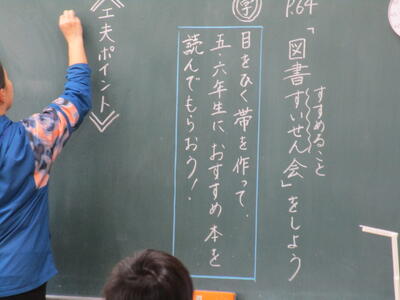 P.64
「図書すいせん会」をしよう
すすめること
学
目をひく帯を作って、
五・六年生に、おすすめ本を
読んでもらおう!
《工夫ポイント》